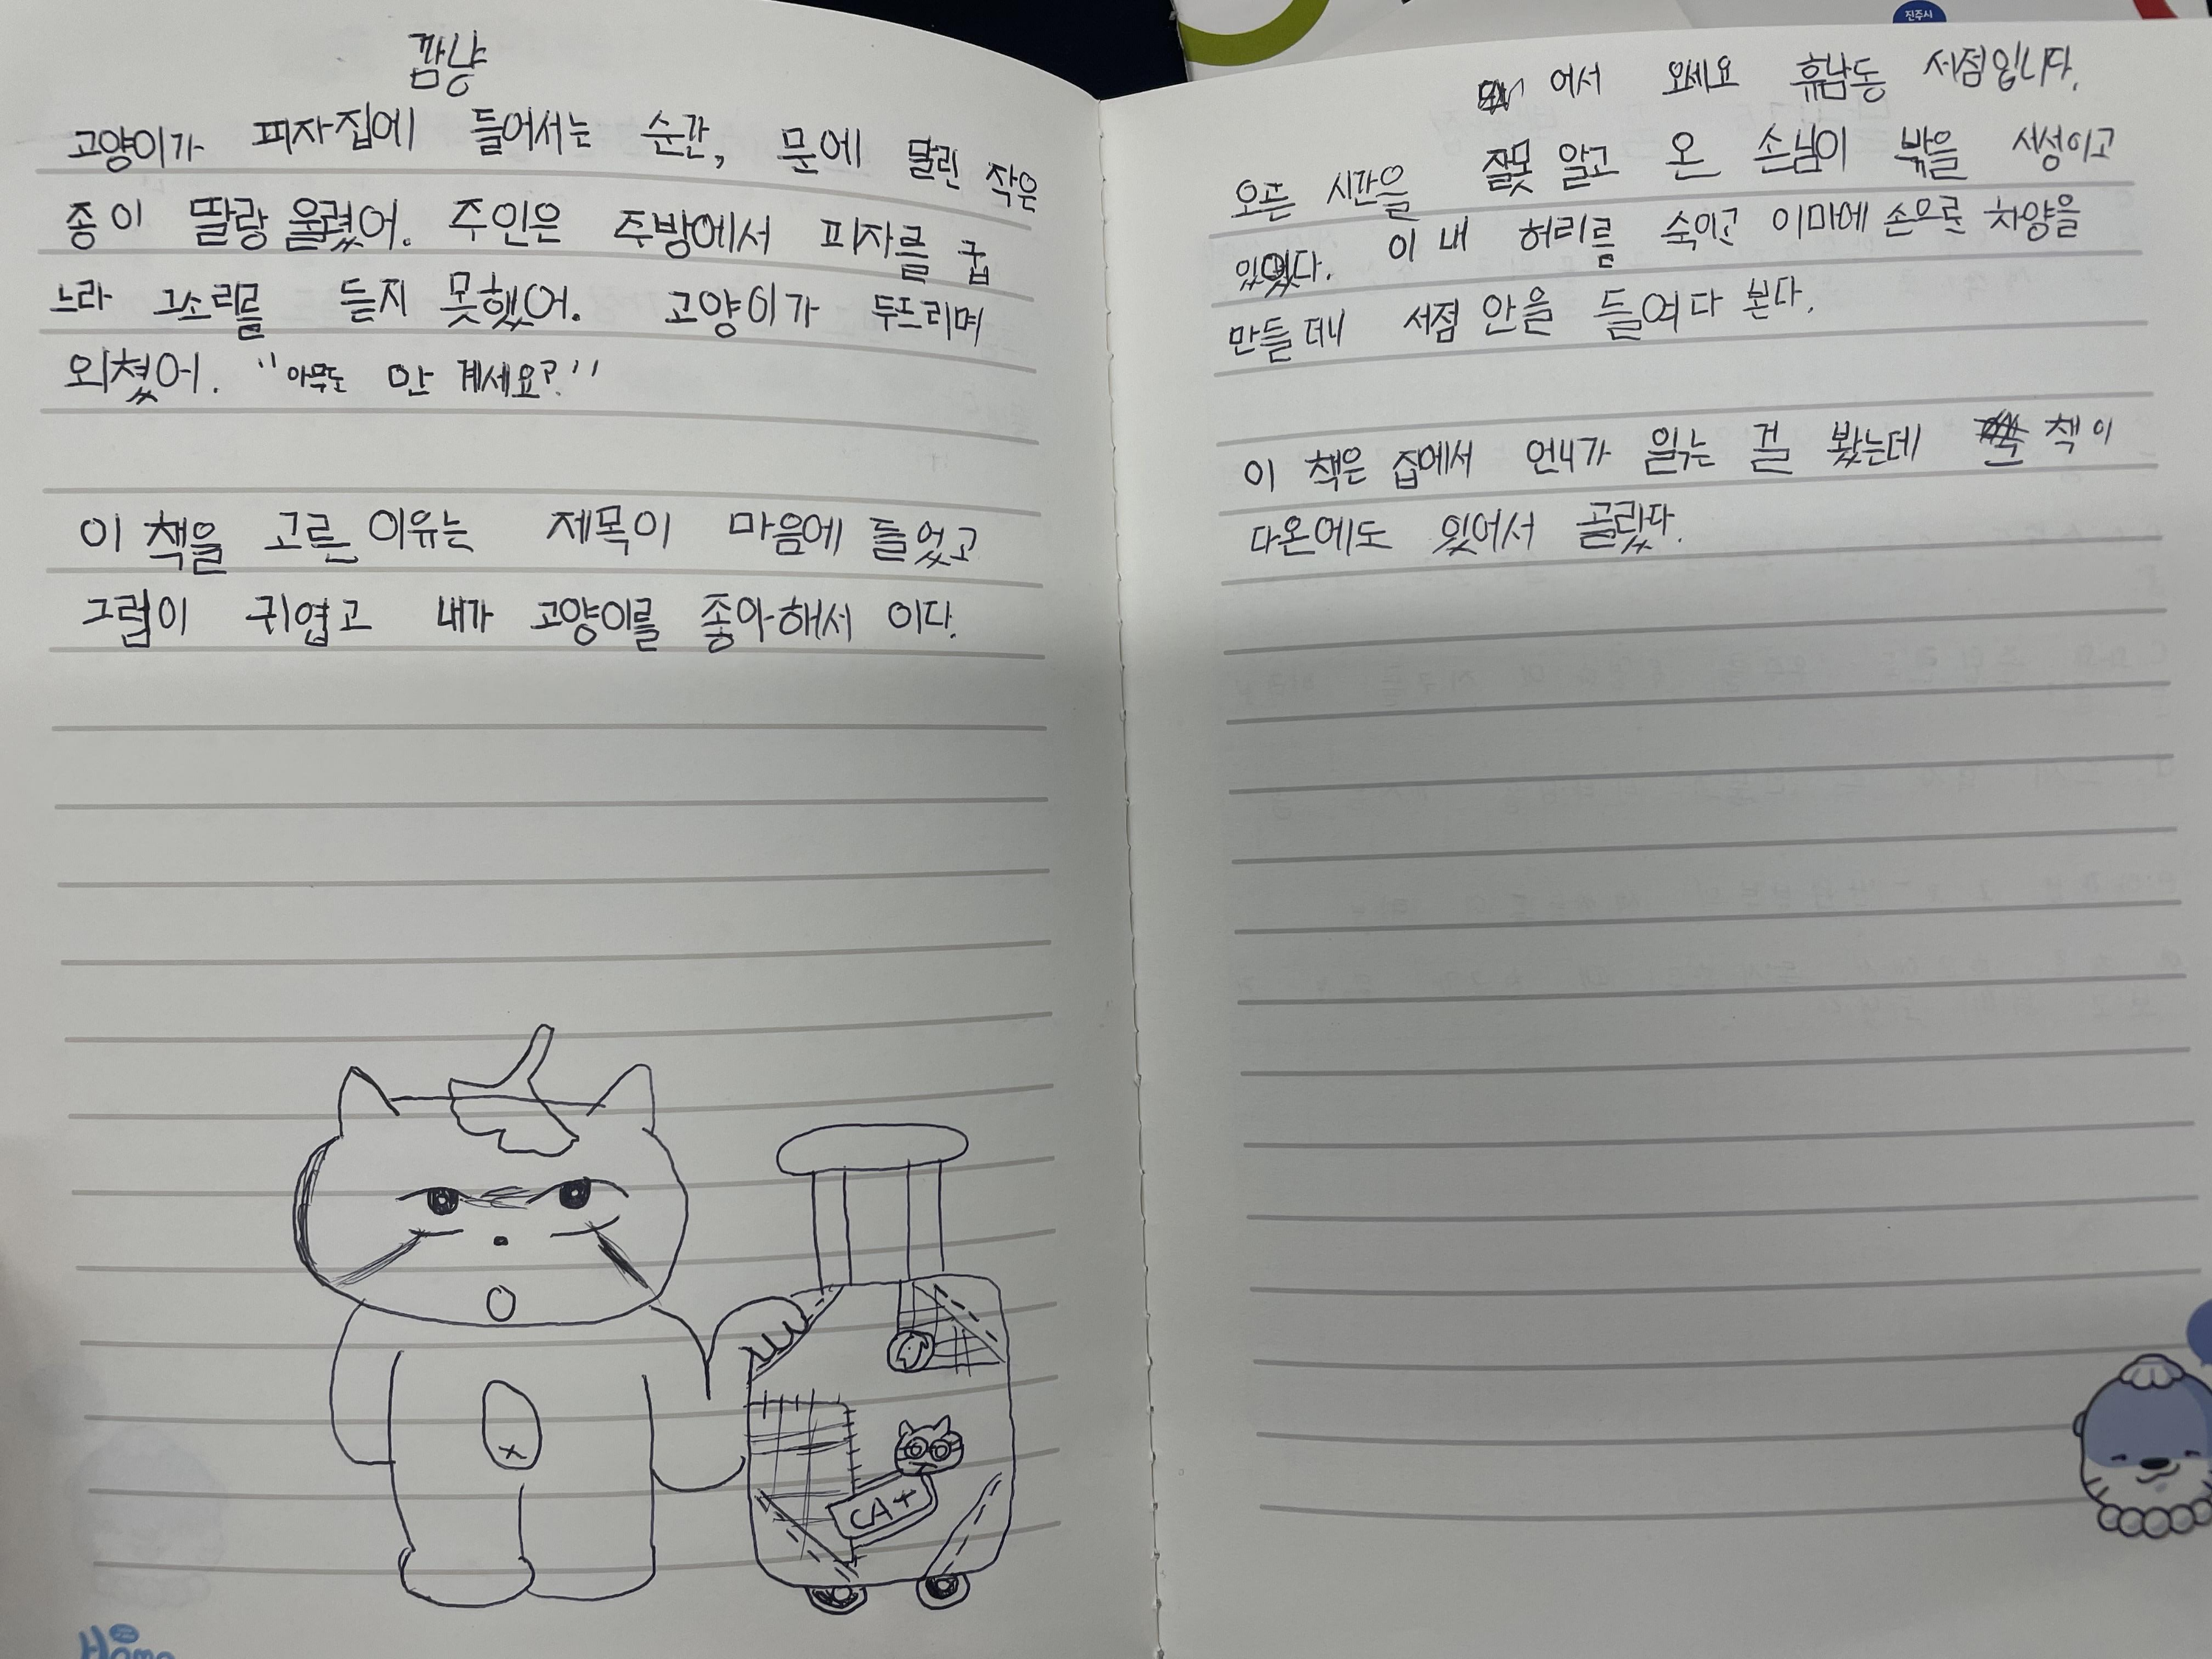 깜냥
고양이가 피자집에 들어서는 순간, 문에 달린 작은
종이 딸랑 울렸어. 주인은 주방에서 피자를 굽
느라 그소리를 듣지 못했어. 고양이가 두드리며
외쳤어. "아무도 안 계세요?"
이 책을 고른 이유는 제목이 마음에 들었고
그림이 귀엽고 내가 고양이를 좋아해서 이다.
CAt
진주시
어서 오세요 휴남동 서점입니다.
오픈 시간을 잘못 알고 온 손님이 밖을 서성이고
있었다. 이내 허리를 숙이고 이마에 손으로 차양을
만들더니 서점 안을 들여다 본다.
이 책은 집에서 언니가 읽는 걸 봤는데 책이
다온에도 있어서 골랐다.